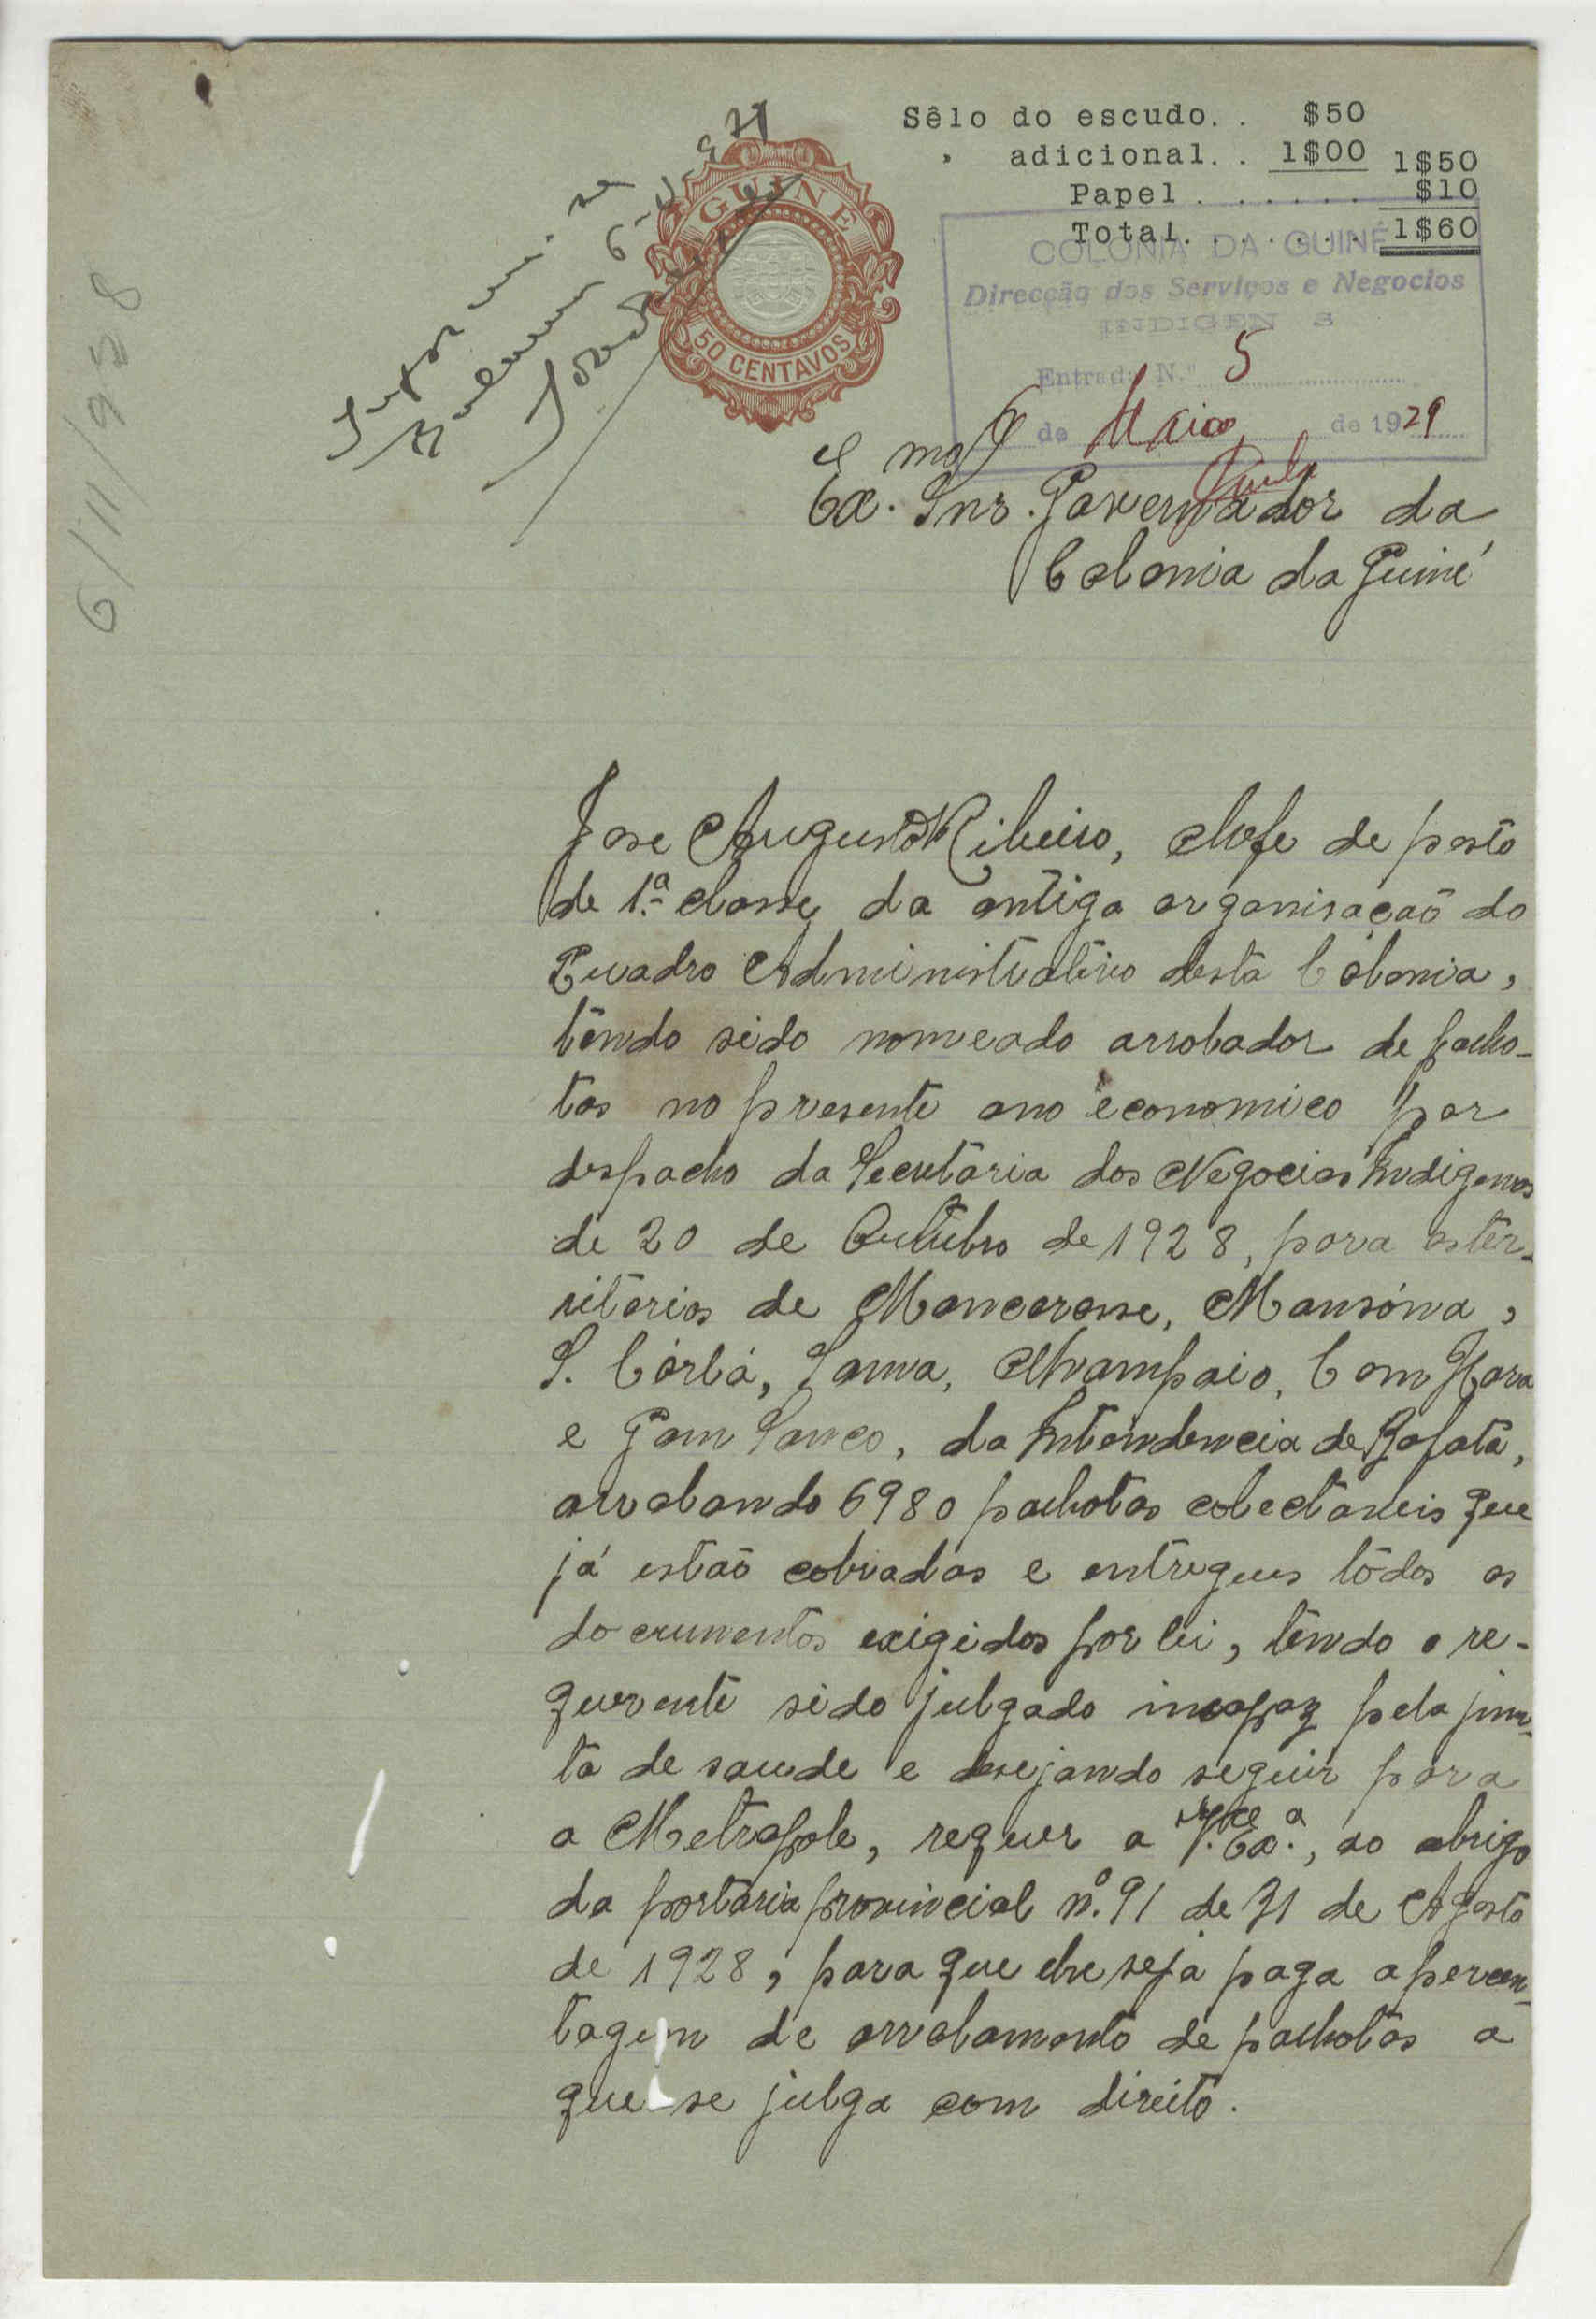 Sêlo do escudo. . $50
" adicional. . 1$00 1$50
Papel . . . . . . . $10
Total. . . . . . . 1$60
GUINÉ
50 CENTAVOS
COLONIA DA GUINÉ
Direcção dos Serviços e Negocios
INDIGENAS
Entrada N.º 5
de Maio de 1929
6/11/958
Exmo. Snr. Governador da
Colonia da Guiné
Jose Augusto Ribeiro, chefe de posto
de 1.ª classe da antiga organisação do
Quadro Administrativo desta Colonia,
têndo sido nomeado arrolador de palho-
tas no presente ano economico por
despacho da Secretaria dos Negocios Indigenas
de 20 de Outubro de 1928, para os ter-
ritorios de Mancorosse, Mansôna,
S. Córlá, Sama, Cam Hara
e Gam Sanco, da Intendencia de Bafatá,
arrolando 6980 palhotas colectaveis que
já estão cobradas e entregues tôdos os
documentos exigidos por lei, têndo o re-
querente sido julgado incapaz pela jun-
ta de saude e desejando seguir para
a Metropole, requer a V. Ex.ª, ao abrigo
da portaria provincial n.º 91 de 31 de Agosto
de 1928, para que lhe seja paga a percen-
tagem de arrolamento de palhotas a
que se julga com direito.